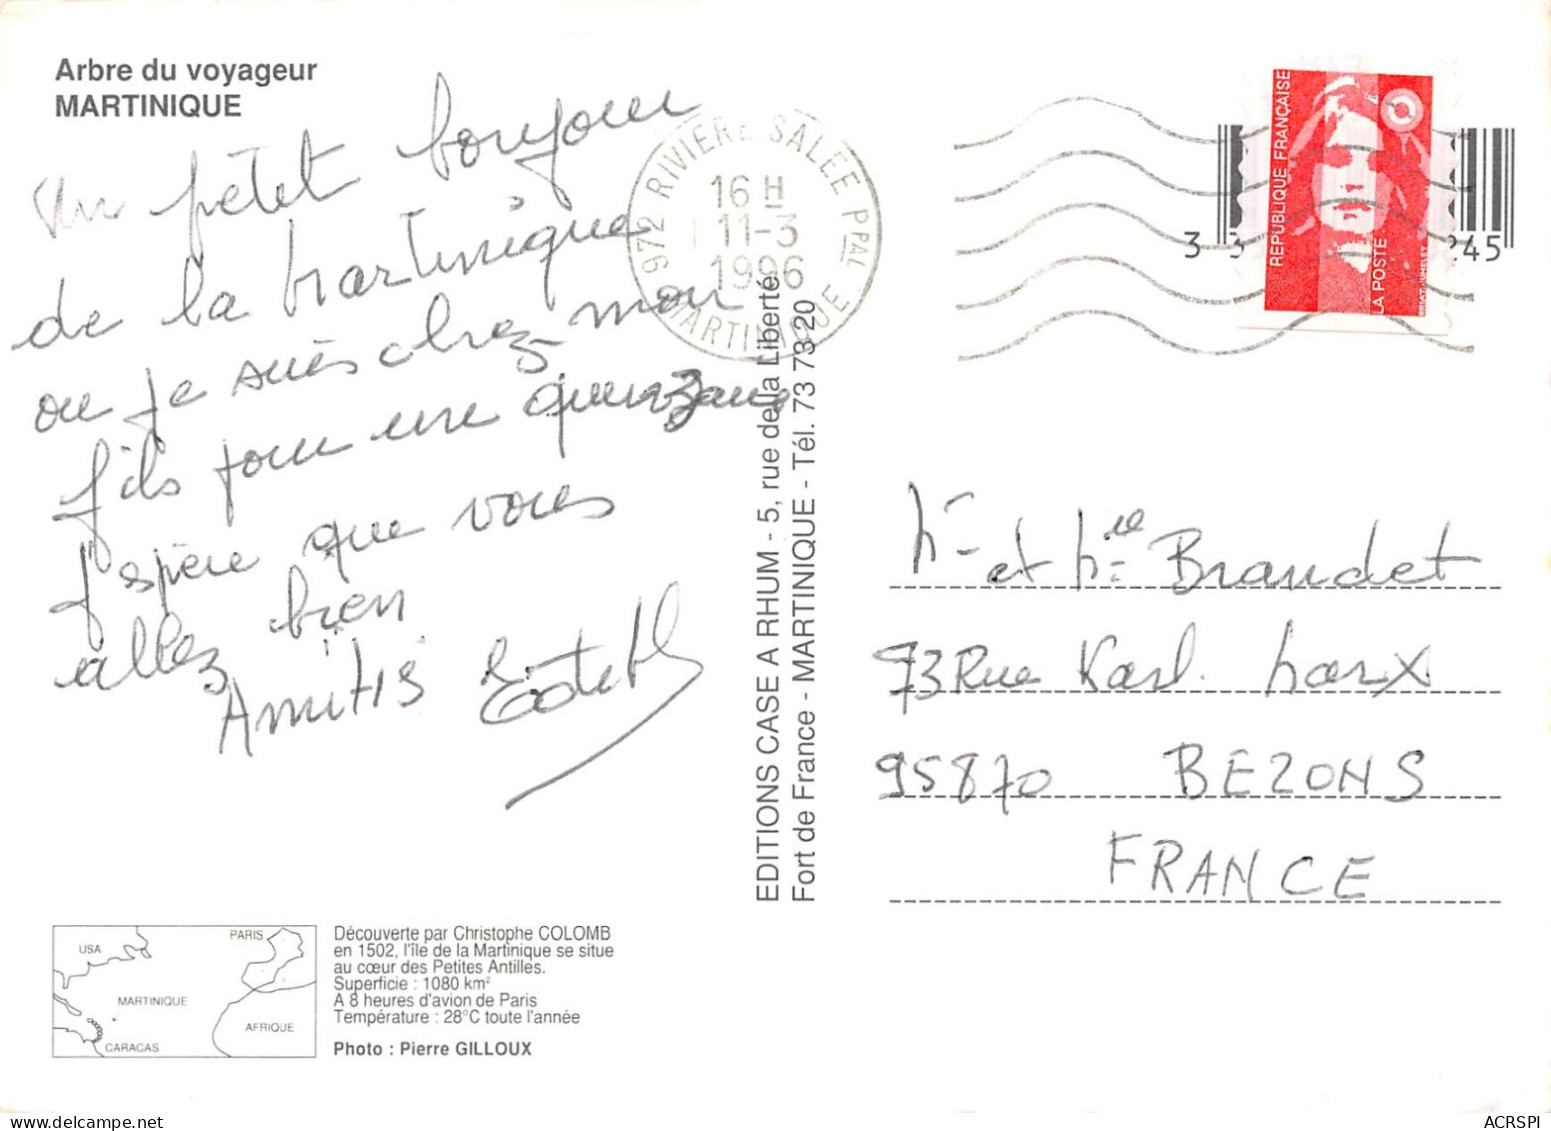 Arbre du voyageur
MARTINIQUE
Un petit bonjour
de la Martinique
ou je suis chez mon
fils pour une quinzaine
J'espère que vous
allez bien
Amitis
972 RIVIERE SALEE PPAL
16 H
11-3
1996
MARTINIQUE
REPUBLIQUE FRANÇAISE
LA POSTE
3
245
EDITIONS CASE A RHUM - 5, rue de la Liberté
Fort de France - MARTINIQUE - Tél. 73 73 20
Mr et Mme Braudet
93 Rue Karl Marx
95870 BEZONS
FRANCE
USA
PARIS
MARTINIQUE
AFRIQUE
CARACAS
Découverte par Christophe COLOMB
en 1502, l'île de la Martinique se situe
au cœur des Petites Antilles.
Superficie : 1080 km²
A 8 heures d'avion de Paris
Température : 28°C toute l'année
Photo : Pierre GILLOUX
ACRSPI